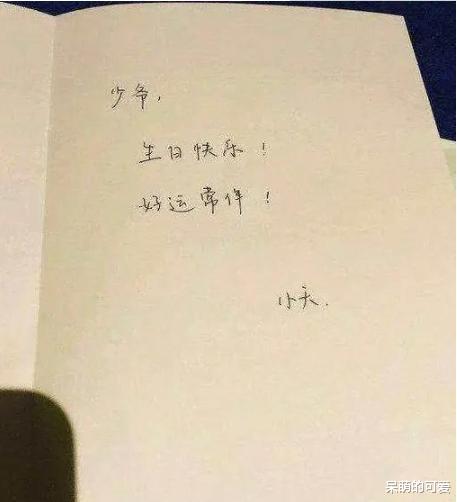 少爷,
生日快乐!
好运常伴!
小天.
呆萌的可爱